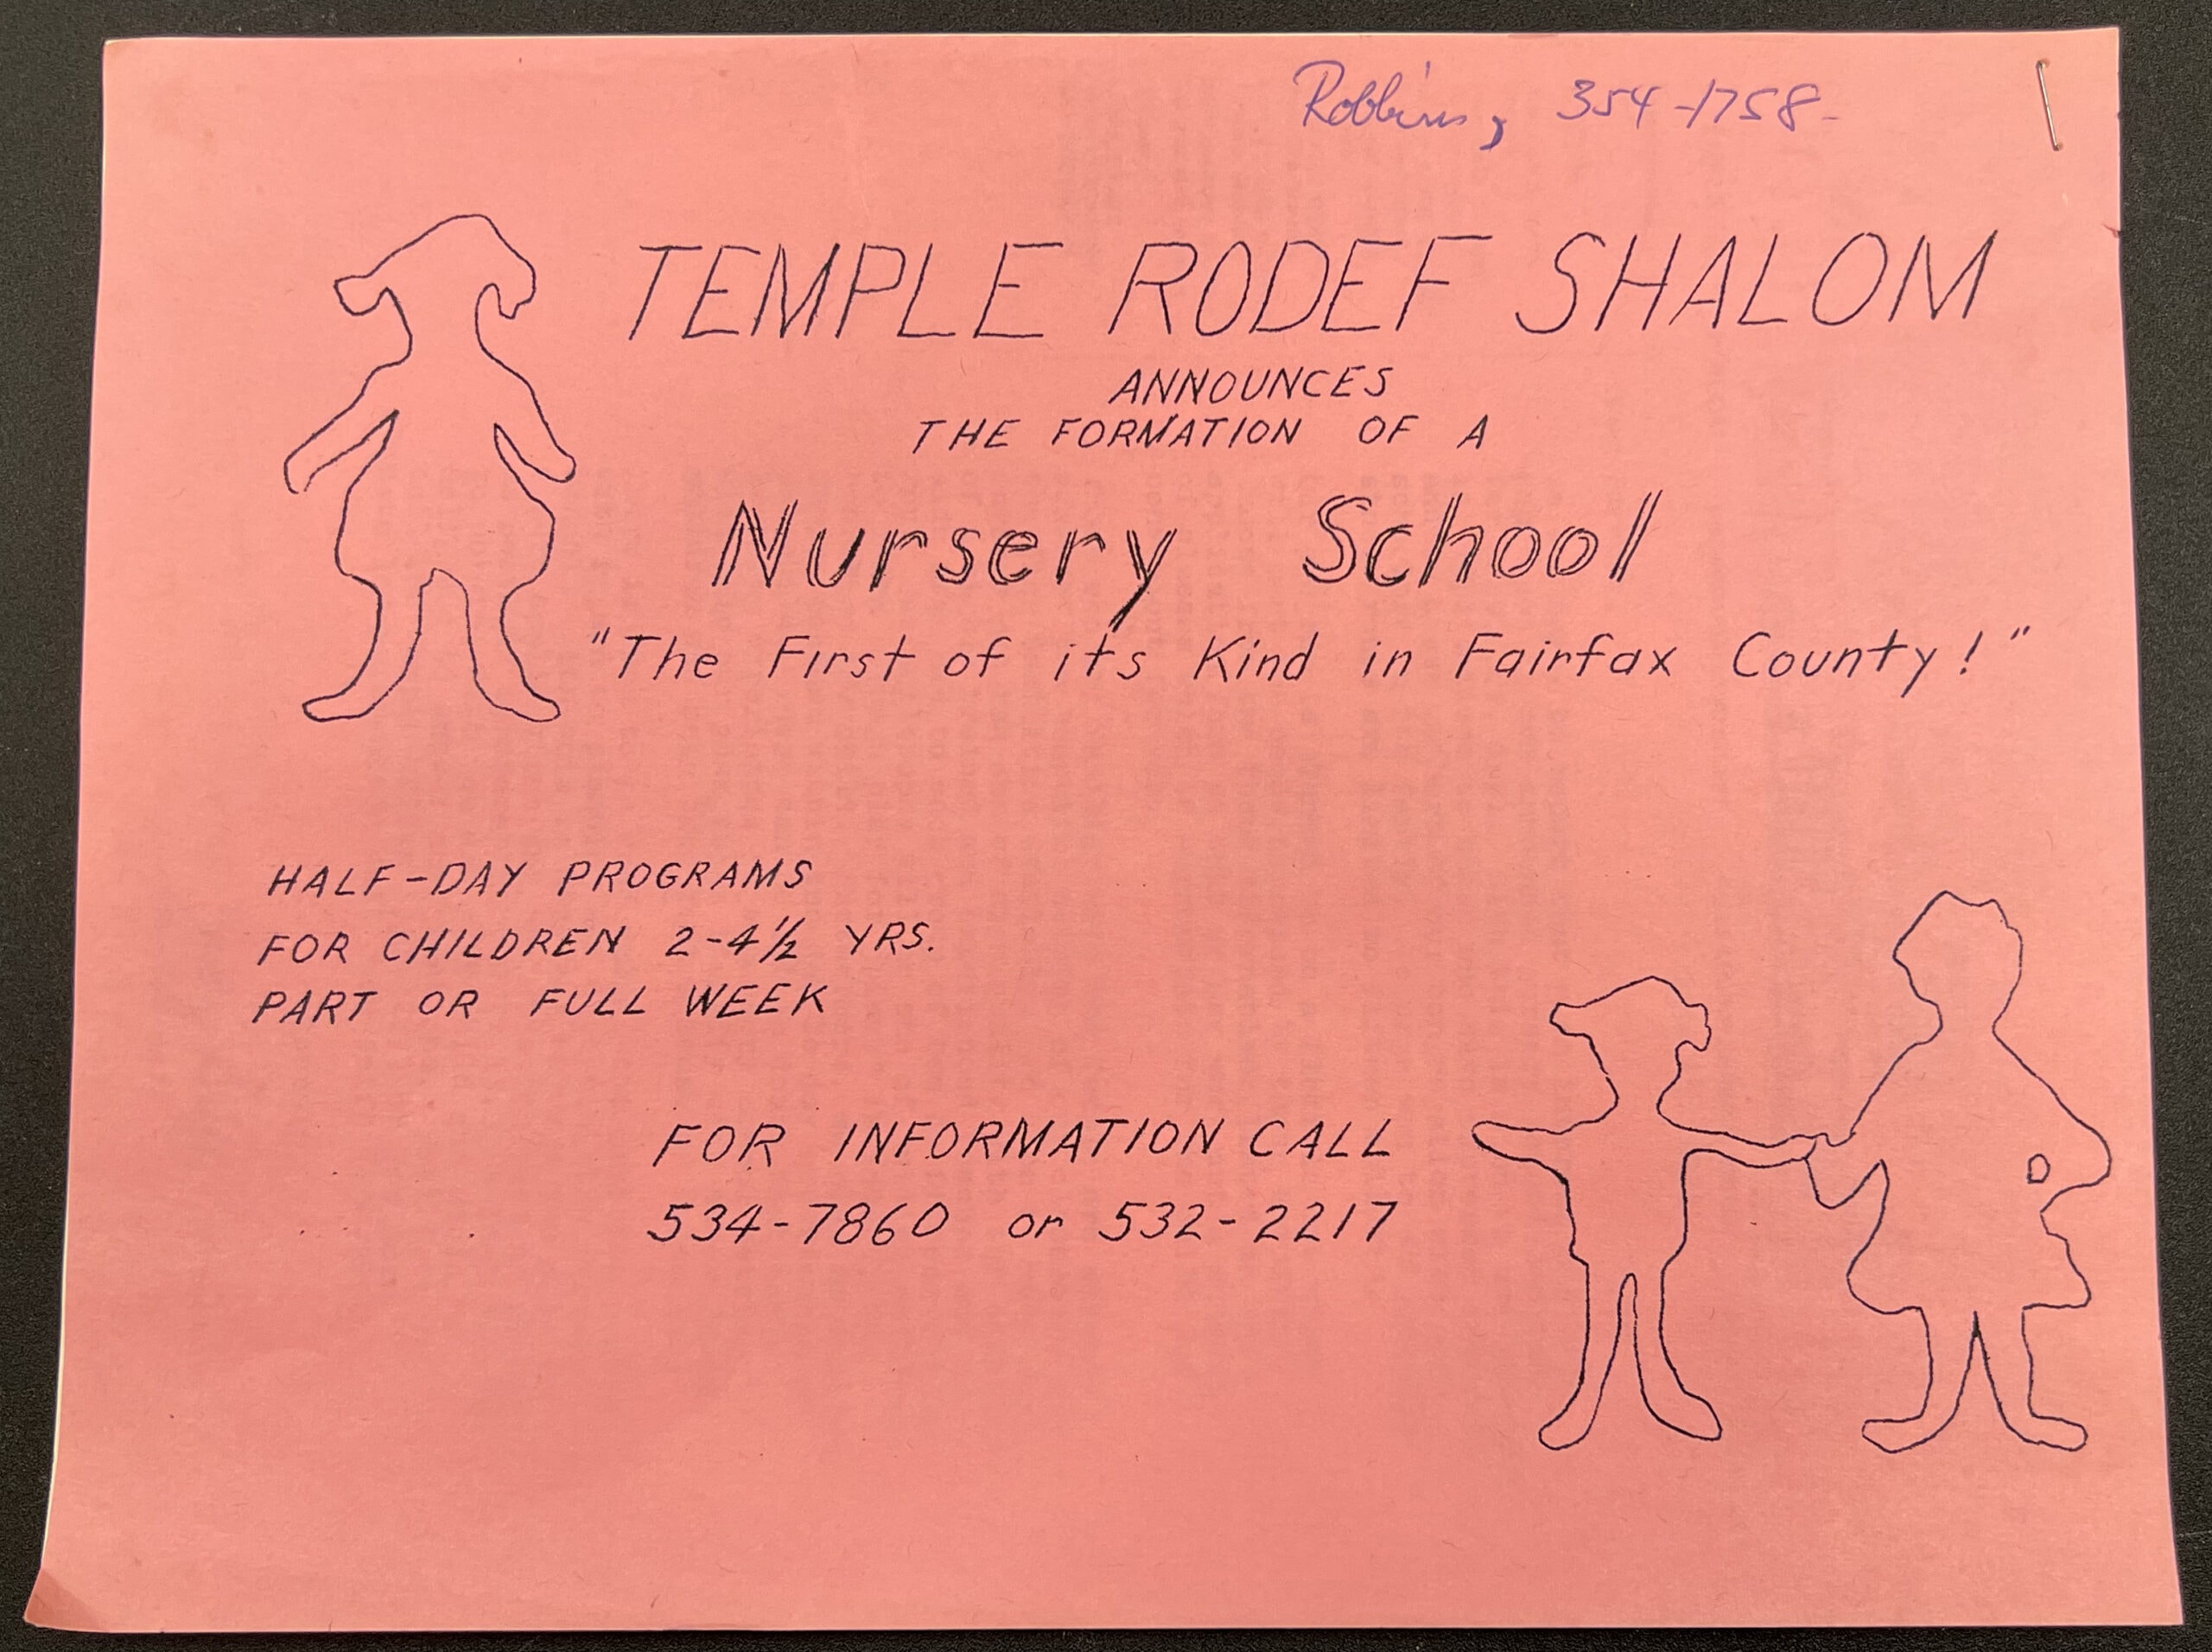 Robbins, 354-1758-
TEMPLE RODEF SHALOM
ANNOUNCES
THE FORMATION OF A
Nursery School
"The First of its Kind in Fairfax County!"
HALF-DAY PROGRAMS
FOR CHILDREN 2-4½ YRS.
PART OR FULL WEEK
FOR INFORMATION CALL
534-7860 or 532-2217